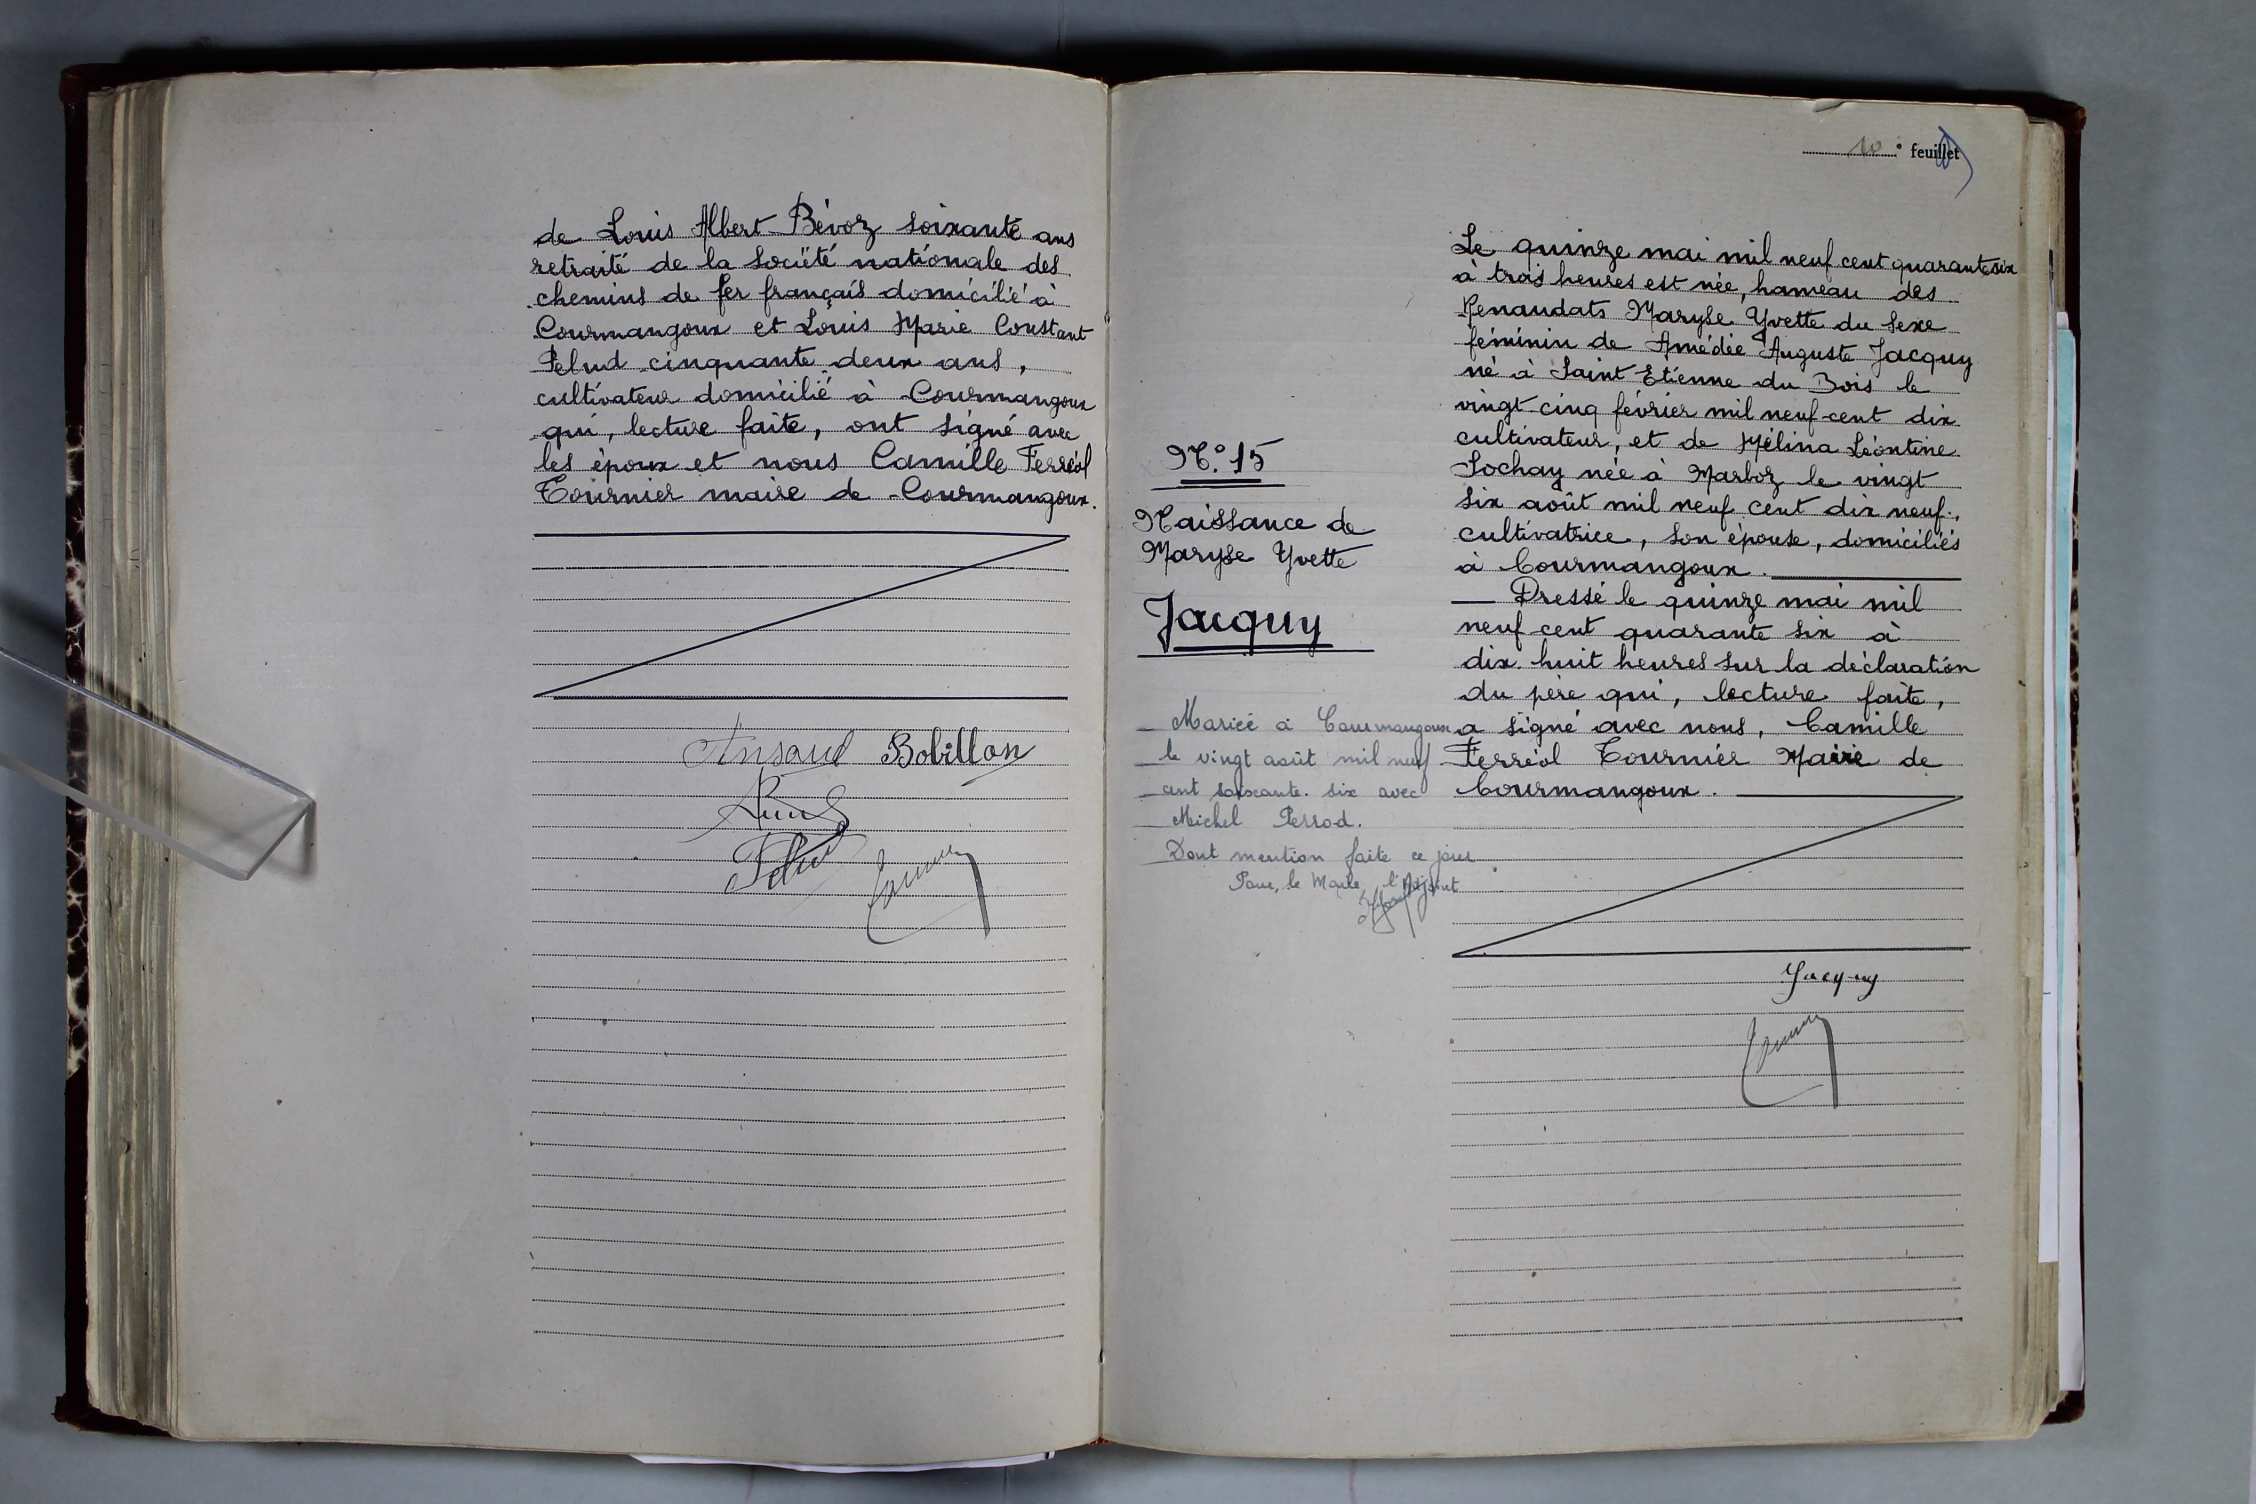 de Louis Albert Bévoz soixante ans
retraité de la société nationale des
chemins de fer français domicilié à
Courmangoux et Louis Marie Constant
Pelud cinquante deux ans,
cultivateur domicilié à Courmangoux
qui, lecture faite, ont signé avec
les époux et nous Camille Ferréol
Tournier maire de Courmangoux.
Bobillon
10e feuillet
Le quinze mai mil neuf cent quarante six
à trois heures est née, hameau des
Renaudats Maryse Yvette du sexe
féminin de Amédée Auguste Jacquy
né à Saint Etienne du Bois le
vingt cinq février mil neuf cent dix
cultivateur, et de Mélina Léontine
Sochay née à Marboz le vingt
six août mil neuf cent dix neuf,
cultivatrice, son épouse, domiciliés
à Courmangoux.
Dressé le quinze mai mil
neuf cent quarante six à
dix huit heures sur la déclaration
du père qui, lecture faite,
a signé avec nous, Camille
Ferréol Tournier Maire de
Courmangoux.
Jacquy
N° 15
Naissance de
Maryse Yvette
Jacquy
Mariée à Courmangoux
le vingt août mil neuf
cent soixante six avec
Michel Perrod.
Dont mention faite ce jour
Pour le Maire, l'Adjoint